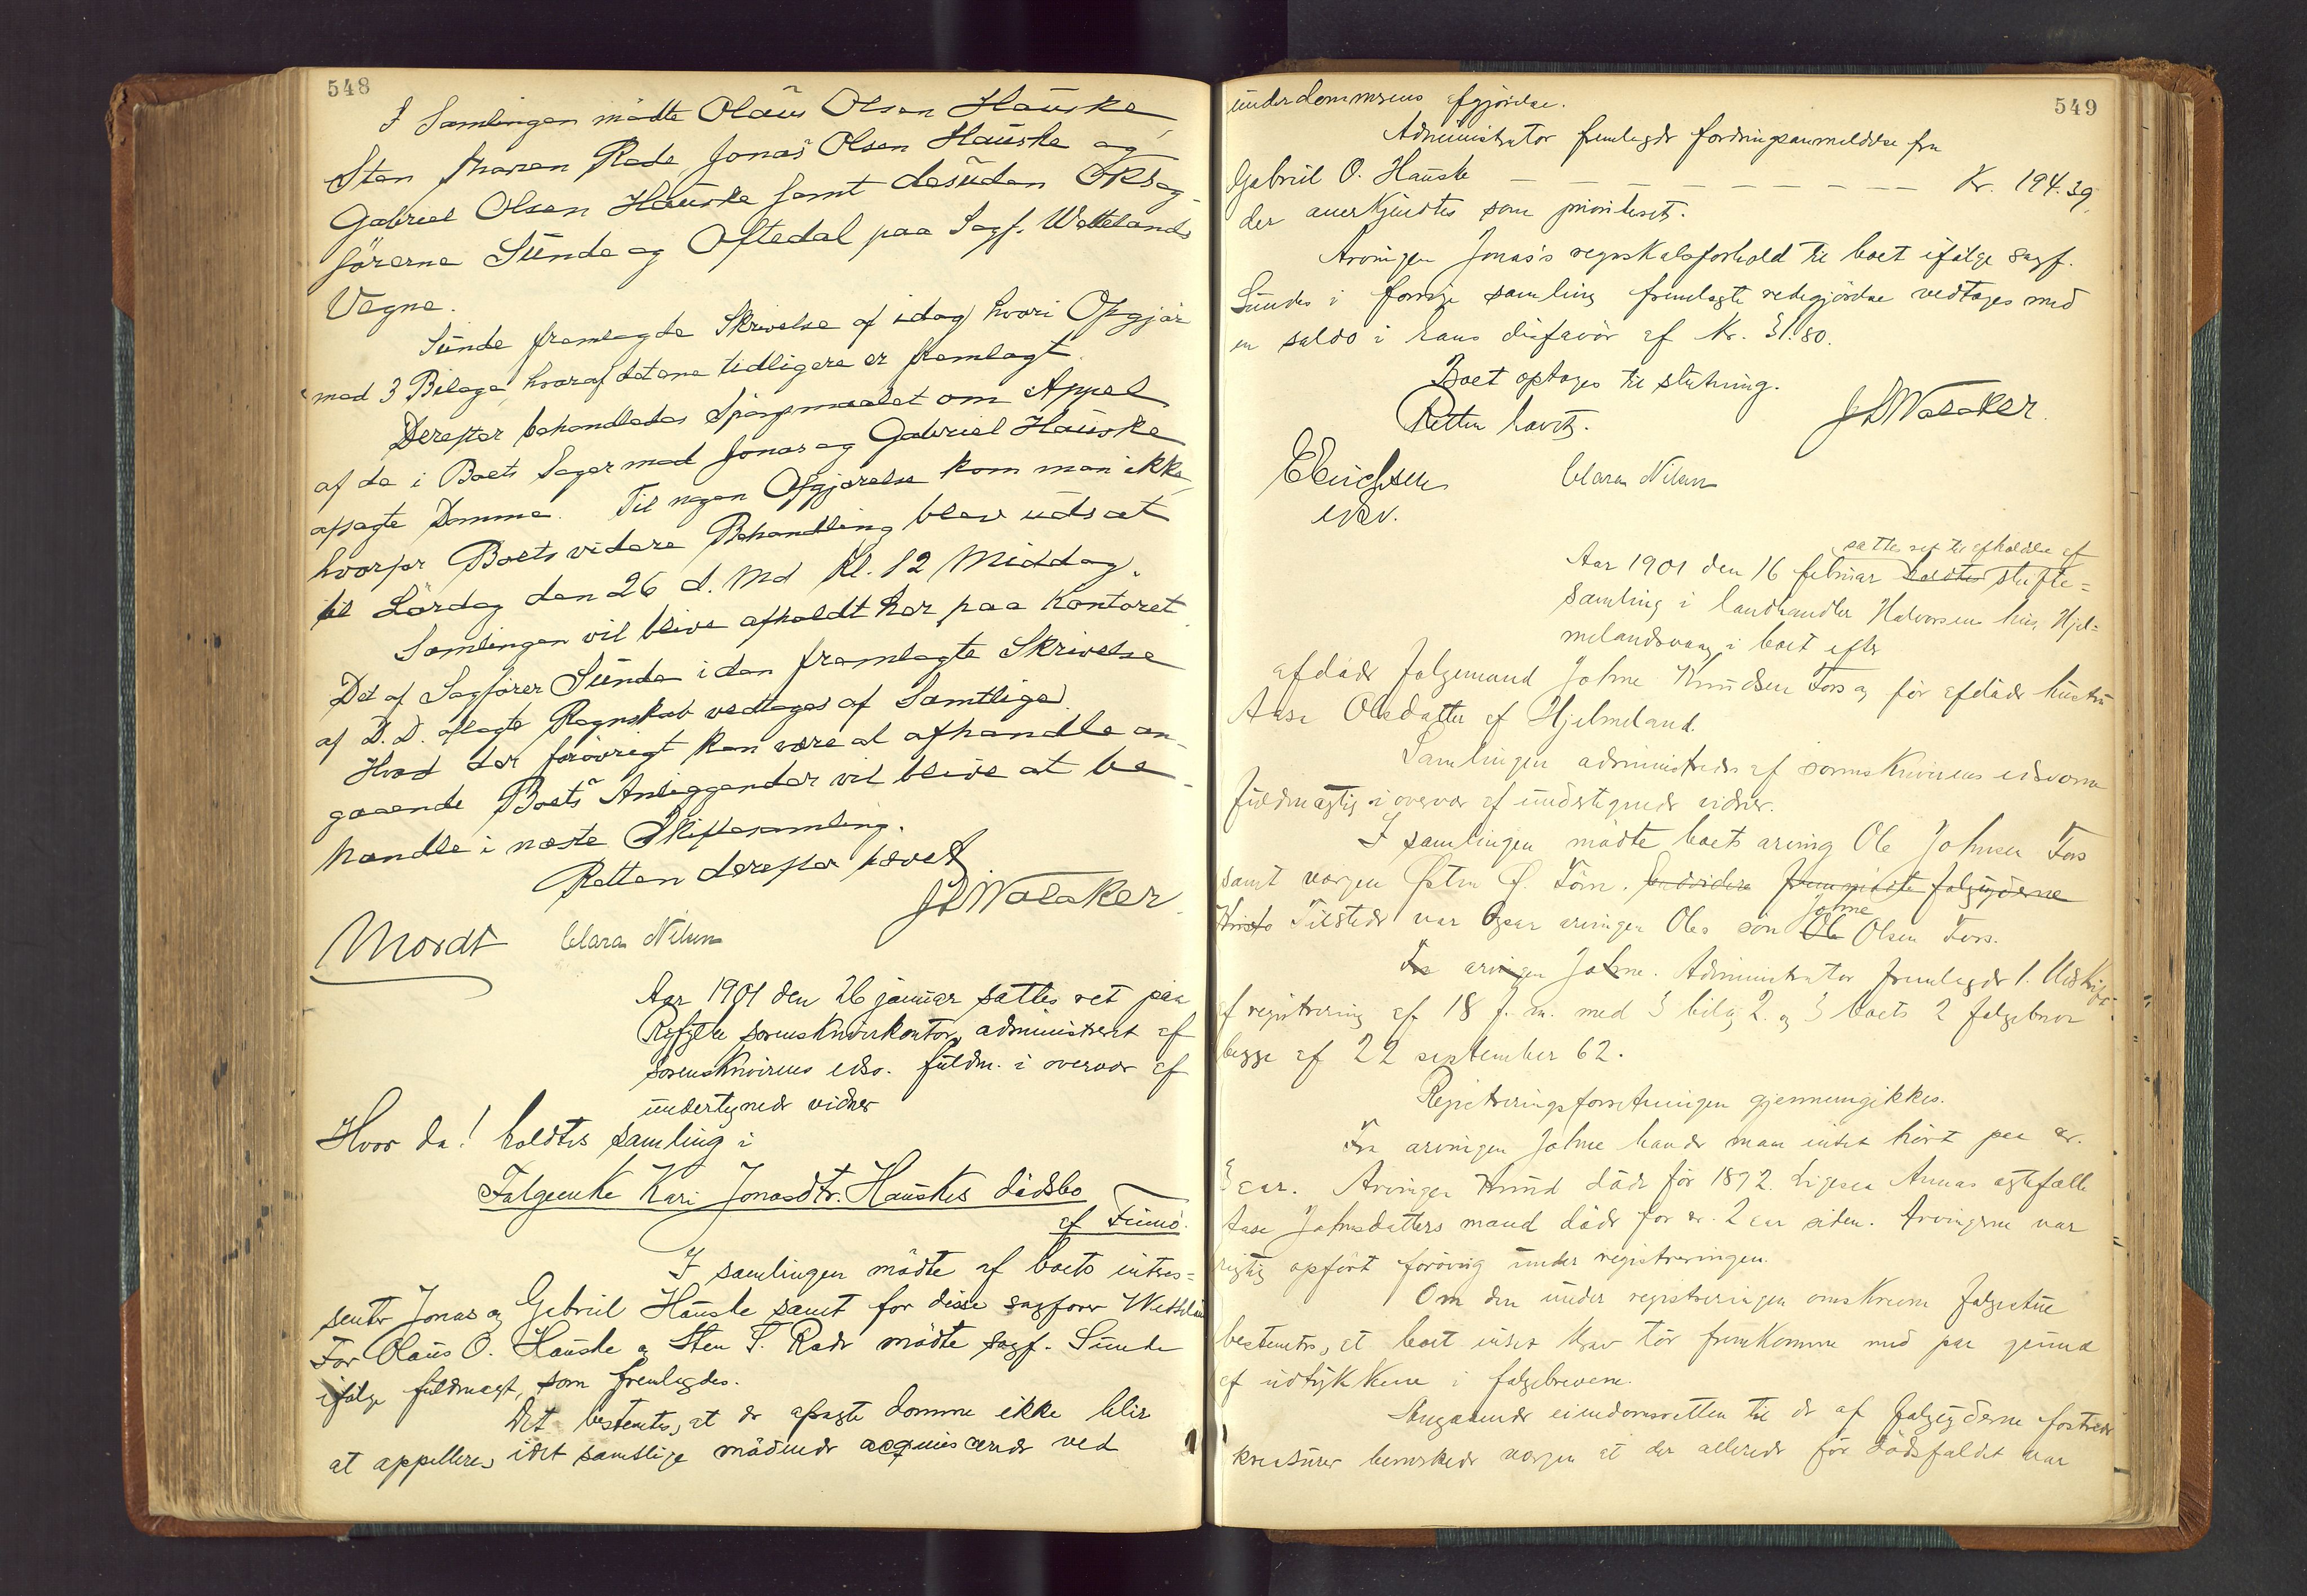 548
I Samlingen mødte Olaus Olsen Hauske,
Sten Rade, Jonas Olsen Hauske og
Gabriel Olsen Hauske samt desuden Ovrsag-
førerne Sunde og Oftedal paa Sagf. Wettelands
Vegne.
Sunde fremlagde Skrivelse af idag hvori Opgjør
med 3 Bilage, hvoraf detene tidligere er fremlagt.
Derefter behandledes Spørgsmaalet om Appel
af de i Boets Sager mod Jonas og Gabriel Hauske
afsagte Domme. Til nogen Afgjørelse kom man ikke,
hvorfor Boets videre Behandling blev udsat
til Lørdag den 26 d. Md Kl. 12 Middag.
Samlingen vil blive afholdt her paa Kontoret.
Det af Sagfører Sunde i den fremlagte Skrivelse
af D.D. aflagte Regnskab vedtages af Samtlige.
Hvad der forøvrigt kan være at afhandle an-
gaaende Boets Anliggender vil blive at be-
handle i næste Skiftesamling.
Retten derefter hævet
JDWalaker.
Mordt Clara Nilsen
Aar 1901 den 26 januar sattes ret paa
Ryfylke sorenskriverkontor, administreret af
sorenskriverens edsv. fuldm. i overvær af
undertegnede vidner
Hvor da! holdtes samling i
Følgeenke Kari Jonasdtr. Hauskes dødsbo
af Finnø.
I samlingen mødte af boets intres=
senter Jonas og Gabriel Hauske samt for disse sagfører Wetteland
For Olaus O. Hauske og Sten T. Rade mødte sagf. Sunde
ifølge fuldmagt, som fremlagdes.
Det bestemtes, at de afsagte domme ikke blir
at appelleres, idet samtlige mødende acquiscerede ved
549
underdommerens afgjørelse.
Administrator fremlagde fordringsanmeldelse fra
Gabriel O. Hauske — — — — — — — — — Kr. 194.39,
der anerkjendtes som prioriteret.
Arvingen Jonas's regnskabsforhold til boet ifølge sagf.
Sundes i forrige samling fremlagte redegjørelse vedtages med
en saldo i hans disfavør af Kr. 31.80.
Boet optages til slutning.
Retten hævet. JDWalaker.
Clara Nilsen
edsv.
sattes ret til afholdelse af
Aar 1901 den 16 februar holdtes skifte=
samling i landhandler Halvorsens hus, Hjel=
melandsvaag, i boet efter
afdøde følgemand Johne Knudsen Fors og før afdøde hustru
Aase Olsdatter af Hjelmeland.
Samlingen administredes af sorenskriverens edsvorne
fuldmægtig i overvær af undertegnede vidner.
I samlingen mødte boets arving Ole Johnsen Fors
samt værgen Østen Ø. Tøn. Endvidere fremmødte følgeyderne
Tilstede var ogsaa arvingen Oles søn Ole Johne Olsen Fors.
Fra arvingen Johne. Administrator fremlagde 1. Udskrift
af registrering af 18 f. m. med 3 bilag 2. og 3 boets 2 følgebreve
begge af 22 september 62.
Registreringsforretningen gjennemgikkes.
Fra arvingen Johne havde man intet hørt paa ca.
3 aar. Arvingen Knud døde før 1892. Ligesaa Annas ægtefælle
Aase Johnsdatters mand døde for ca. 2 aar siden. Arvingerne var
rigtig opført forøvrig under registreringen.
Om den under registreringen omskrevne følgestue
bestemtes, at boet intet krav tør fremkomme med paa grund
af udtrykkene i følgebrevene.
Angaaende eiendomsretten til de af følgeyderne fostrede
kreaturer bemærkede værgen at der allerede før dødsfaldet var